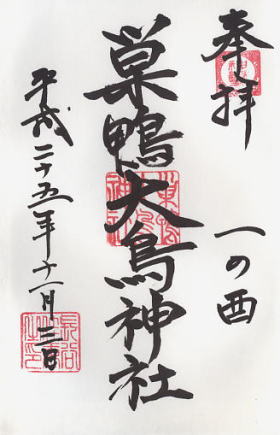 奉拝
一の酉
巣鴨大鳥神社
平成二十五年十一月三日